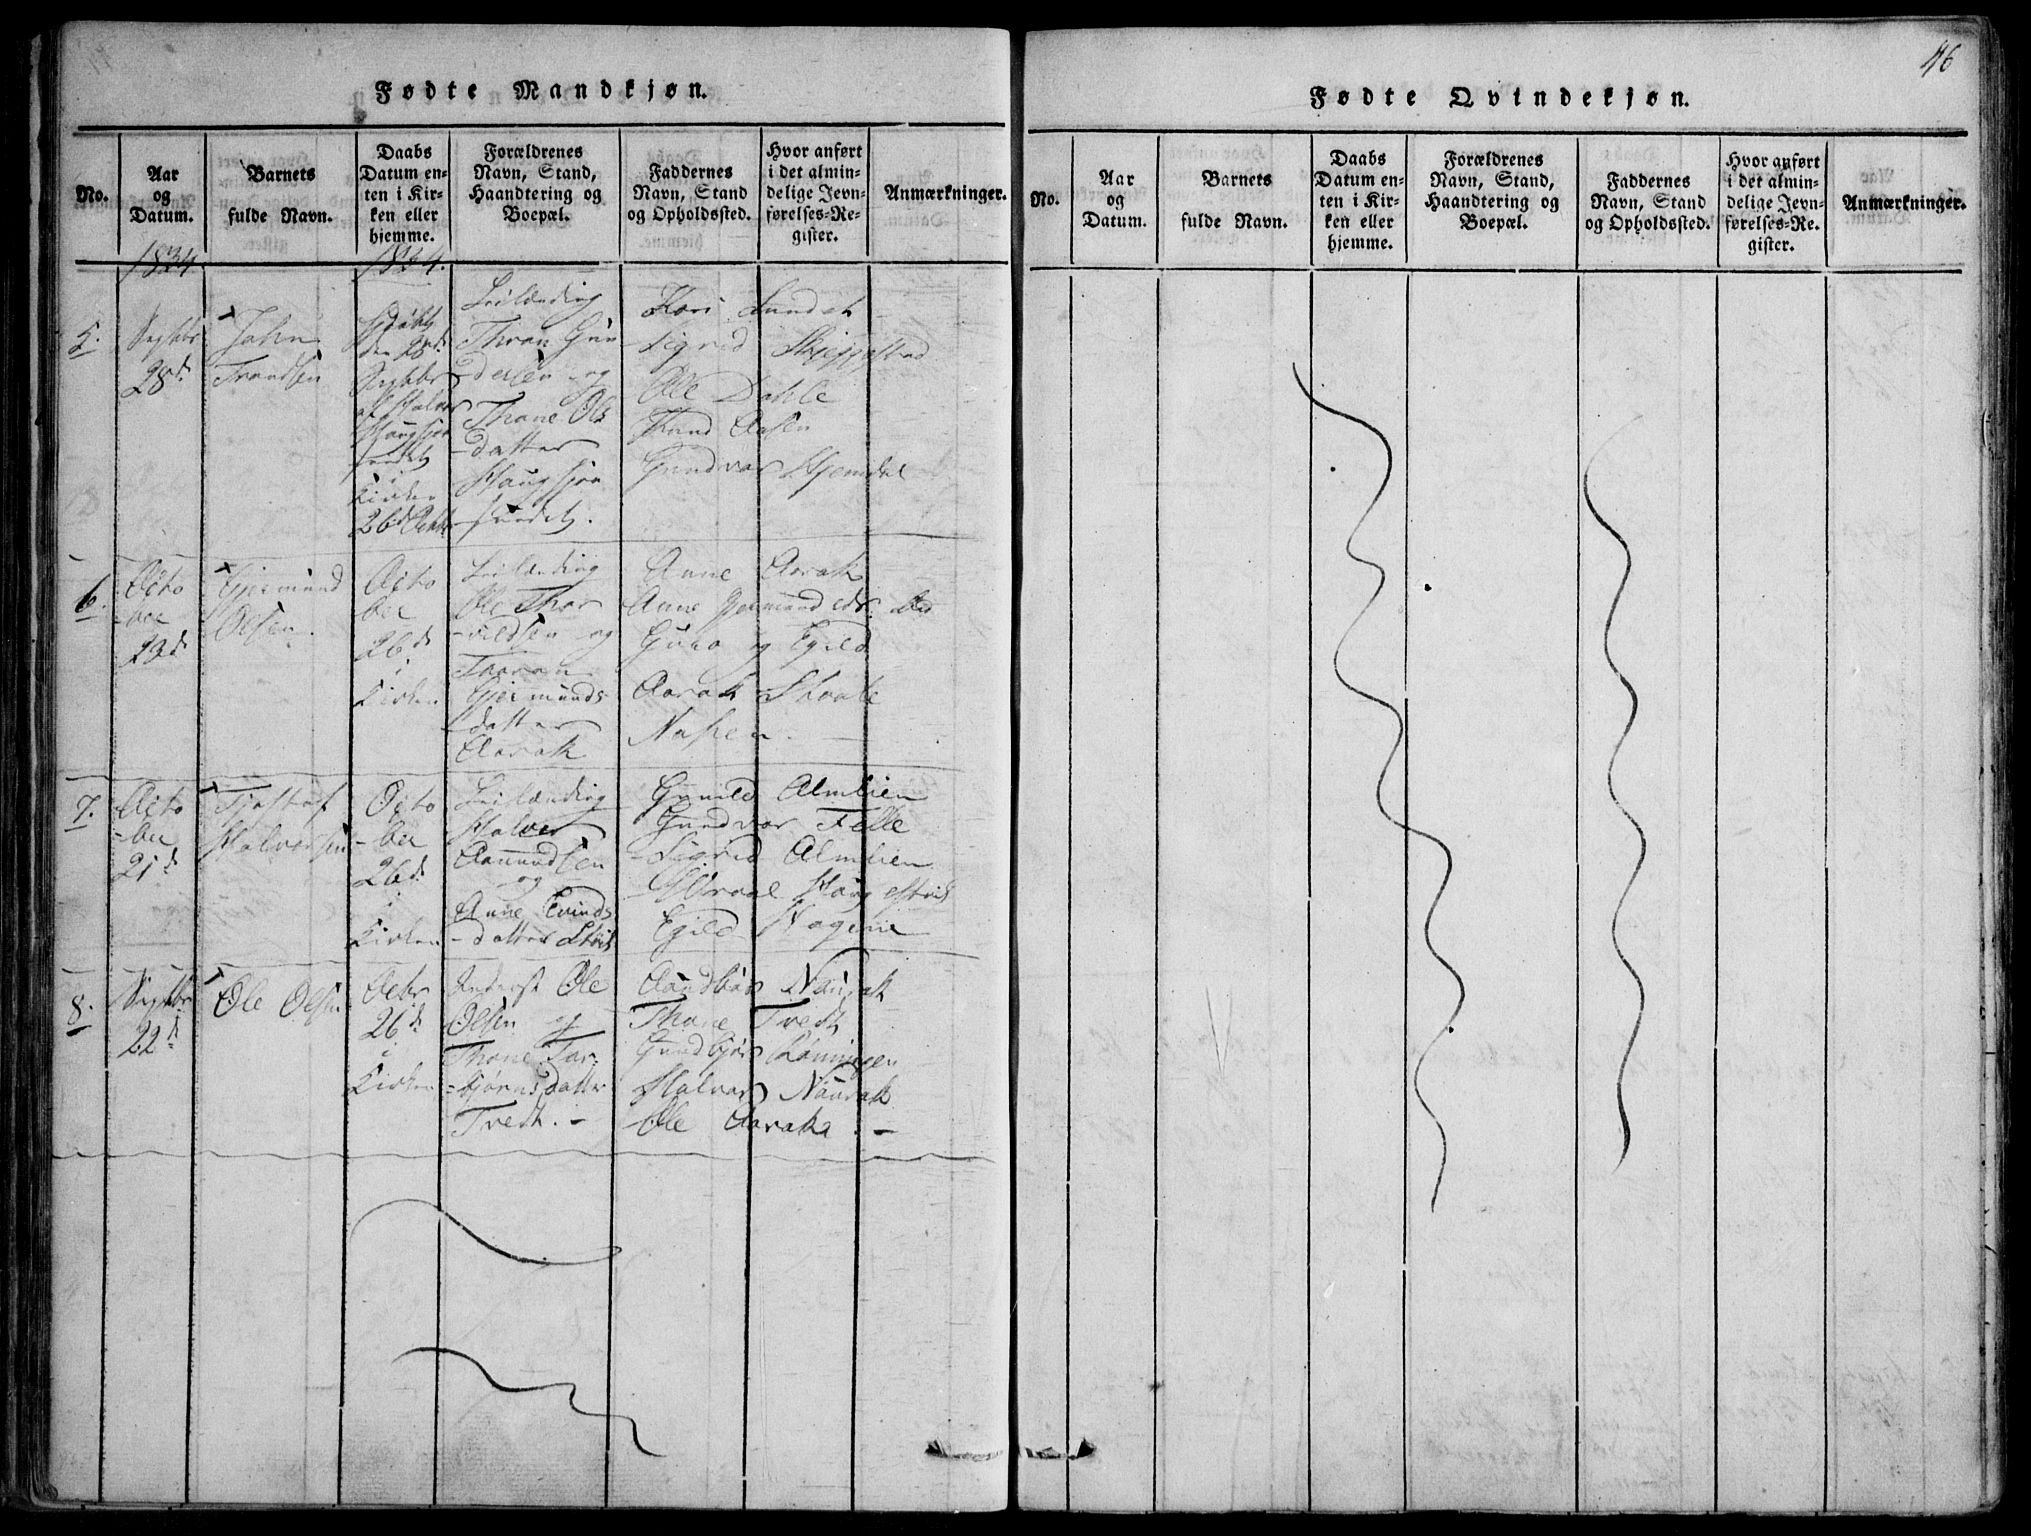 46
Fødte Mandkjøn.
No.
Aar
og
Datum.
Barnets
fulde Navn.
Daabs
Datum en-
ten i Kir-
ken eller
hjemme.
Forældrenes
Navn, Stand,
Haandtering og
Boepæl.
Faddernes
Navn, Stand
og Opholdssted.
Hvor anført
i det almin-
delige Jevn-
førelses-Re-
gister.
Anmærkninger.
1834.
1834.
5.
Septbr
28de
John
Trondsen
den 28de
Septbr
af Halvor
i
Kirken
26de Octbr
Leilænding
Gun-
dersen og
Thone Ols
-datter
Haugsjaa
-sundet.
Kari Sundet
Sigrid Skjeggestad
Ole Dahle
Knud Aasen
Gundvor Hjemdal
6.
Octo
-ber
23de
Gjermund
Olsen.
Octo
ber
26de
i
Kirken
Leilænding
Ole Thor
-vildsen og
Gjermunds
datter
Aarak
Anne Aarak
Anne Gjermundsdr.
Guro og Egild
Aarak
7.
Octo
-ber
21de
Tjostof
Halvorsen
Octo
-ber
26de
i
Kirken
Leilænding
Halvor
Aanundsen
og
Anne Evinds
-datter
Gunild Almlien
Gundvor Felle
Sigrid Almlien
Egild
8.
Septbr
22de
Ole Olsen
Octbr
26de
i
Kirken
Inderst Ole
Olsen og
Thone Tor-
-bjørnsdatter
Tredt. -
Aandbør
Thone Tredt
Gundbjør Rønningen
Halvor
Ole Aarak. -
Fødte Qvindekjøn.
No.
Aar
og
Datum.
Barnets
fulde Navn.
Daabs
Datum en-
ten i Kir-
ken eller
hjemme.
Forældrenes
Navn, Stand,
Haandtering og
Boepæl.
Faddernes
Navn, Stand
og Opholdssted.
Hvor anført
i det almin-
delige Jevn-
førelses-Re-
gister.
Anmærkninger.